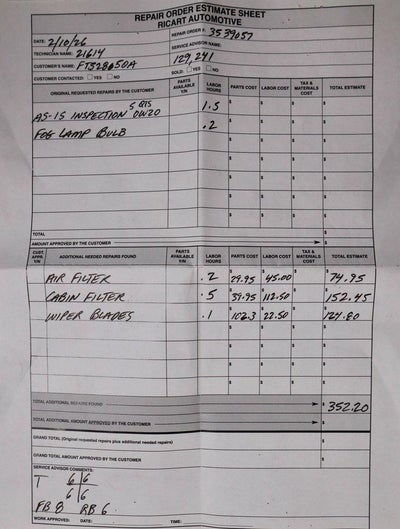 REPAIR ORDER ESTIMATE SHEET
RICART AUTOMOTIVE
DATE: 2/10/26
REPAIR ORDER #: 3539057
TECHNICIAN NAME: 21614
SERVICE ADVISOR NAME:
CUSTOMER'S NAME: FT328050A
129,241
CUSTOMER CONTACTED: YES NO
SOLD: YES NO
ORIGINAL REQUESTED REPAIRS BY THE CUSTOMER PARTS AVAILABLE Y/N LABOR HOURS PARTS COST LABOR COST TAX & MATERIALS COST TOTAL ESTIMATE
AS-IS INSPECTION 5 QTS 0W20 1.5 $ $ $ $
FOG LAMP BULB .2 $ $ $ $
$ $ $ $
$ $ $ $
$ $ $ $
$ $ $ $
TOTAL $
AMOUNT APPROVED BY THE CUSTOMER $
CUST. APPR. Y/N ADDITIONAL NEEDED REPAIRS FOUND PARTS AVAILABLE Y/N LABOR HOURS PARTS COST LABOR COST TAX & MATERIALS COST TOTAL ESTIMATE
AIR FILTER .2 $29.95 $45.00 $ $74.95
CABIN FILTER .5 $39.95 $112.50 $ $152.45
WIPER BLADES .1 $102.3 $22.50 $ $124.80
$ $ $ $
$ $ $ $
$ $ $ $
$ $ $ $
TOTAL ADDITIONAL REPAIRS FOUND $352.20
TOTAL ADDITIONAL AMOUNT APPROVED BY THE CUSTOMER $
GRAND TOTAL (Original requested repairs plus additional needed repairs) $
GRAND TOTAL AMOUNT APPROVED BY THE CUSTOMER $
SERVICE ADVISOR COMMENTS:
T 6 6
6 6
FB 8 RB 6
WORK APPROVED: DATE: TIME: